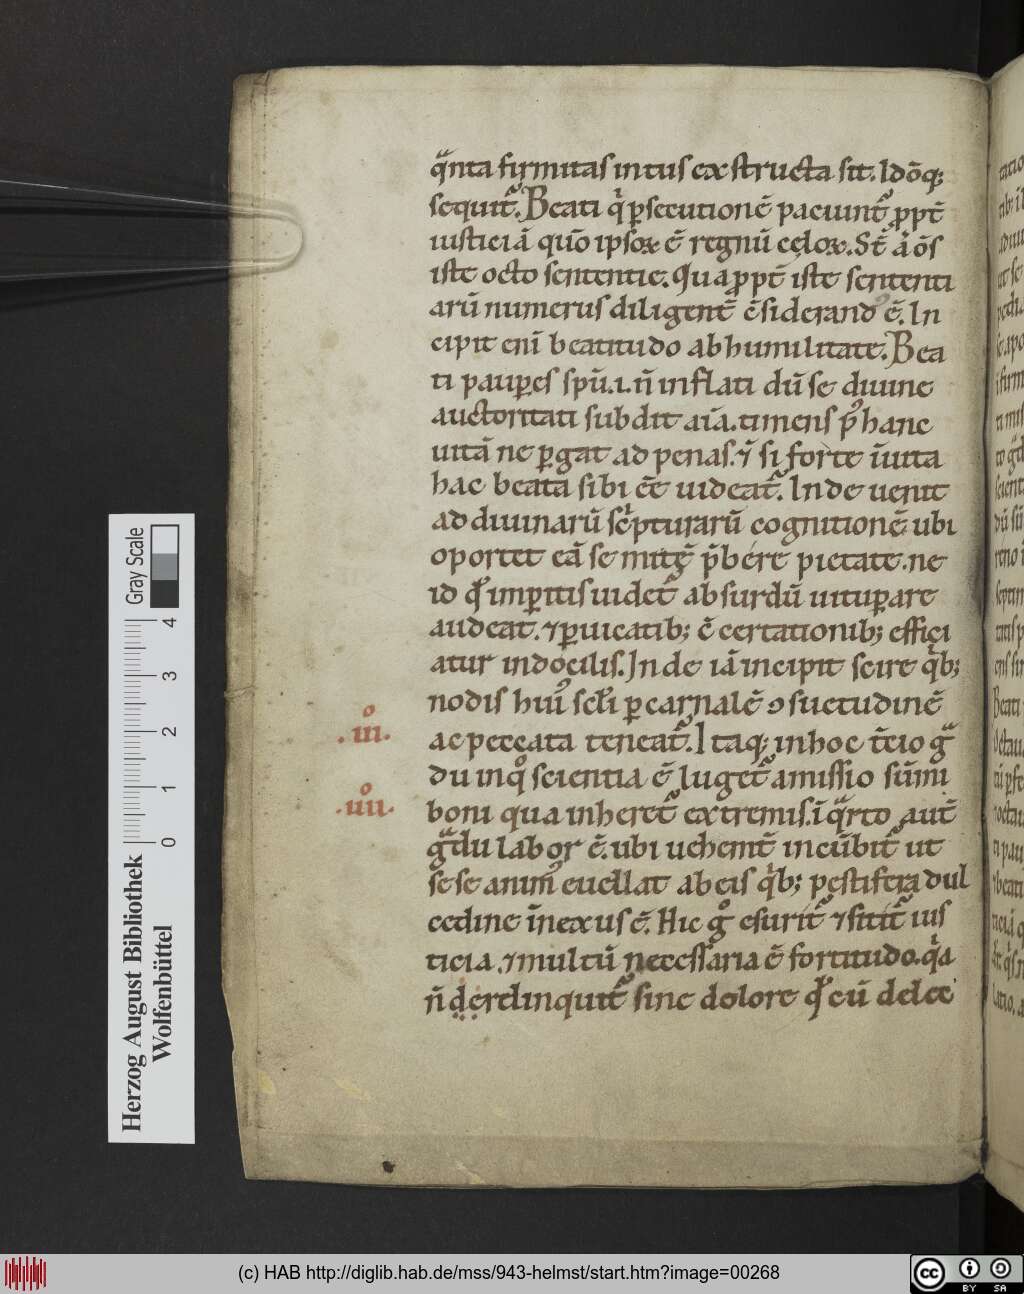 q̄nta firmitas intus exstructa sit. Idōq;
sequit̄. Beati q̇ p̱secutionē paciunt̄ ꝓpt̄
iusticiā quō ipsoꝝ ē regnū cęloꝝ. St̄ āōs
iste octo sententie. Qua ꝓpt̄ iste sententi
arū numerus diligent̄ ꝯsiderand᷒ ē. In
cipit eni beatitudo ab humilitate. Bea
ti pauꝑes spū.i.n̄ inflati dū se diuine
auctoritati subdit aīa. timens p᷒ hanc
uitā ne ꝑgat ad penas. ⁊ si forte īuita
hac beata sibi eē uideat̄. Inde uenit
ad diuinarū scͥpturarū cognitionē ubi
oportet eā se mitē p̄bere pietate. ne
id qđ imꝑitis uidet̄ absurdū uituꝑare
audeat. ⁊ ꝑuicatib; ꝯcertationib; effici
atur indocilis. Inde iā incipit scire qͥb;
nodis hui᷒ scłi ꝑ carnalē ꝯsuetudinē
ac peccata teneat̄. Itaq; in hoc t̄cio gͣ
du inqͦ scientia ē luget̄ amissio sūmi
boni qua inheret̄ extremis. ī qͣrto aut̄
gͣdu labor ē. ubi uehemt̄ incūbit̄ ut
sese anim᷒ euellat ab eis qͥb; pestifera dul
cedine īnexus ē. Hic gͦ esurit̄ ⁊ sitit̄ ius
ticia. ⁊ multū necessaria ē fortitudo. qͥa
n̄ derelinquit̄ sine dolore qđ cū delec
.iii.ͦ
.iiii.ͦ
Herzog August Bibliothek
Wolfenbüttel
0 1 2 3 4
Gray Scale
(c) HAB http://diglib.hab.de/mss/943-helmst/start.htm?image=00268
cc BY SA